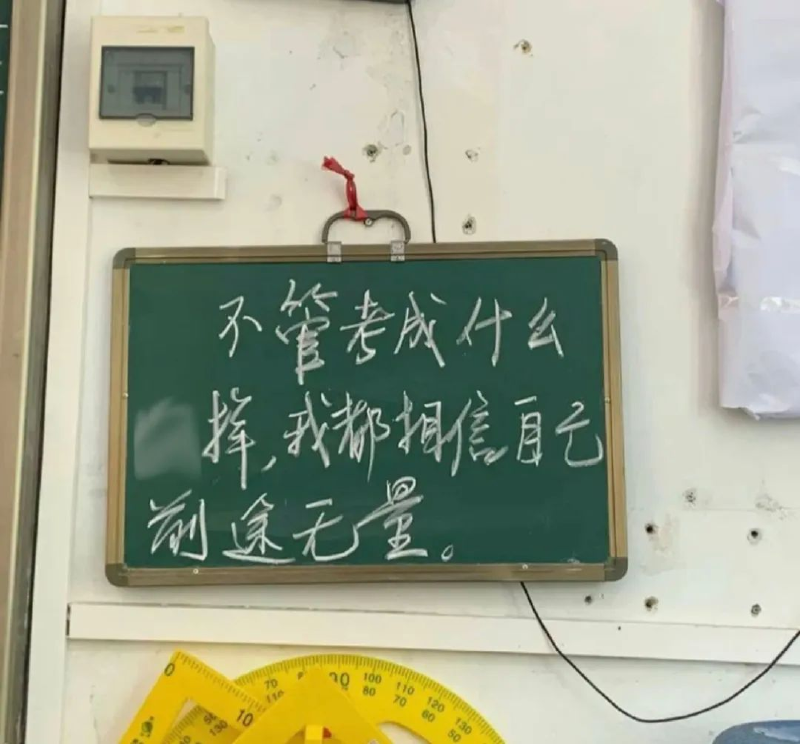 不管考成什么
样,我都相信自己
前途无量。
0
10
70 100 110 120 130
80 70 60 50